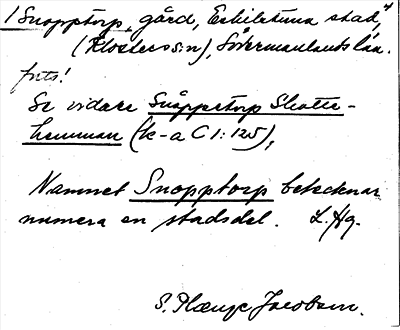 1 Snopptorp, gård, Eskilstuna stad,
(Klosters s:n), Södermanlands län.
forts!
Se vidare Snopptorp Skatte-
hemman (k-a C 1: 125),
Namnet Snopptorp betecknar
numera en stadsdel. L. Hg.
S. Plænge Jacobson.